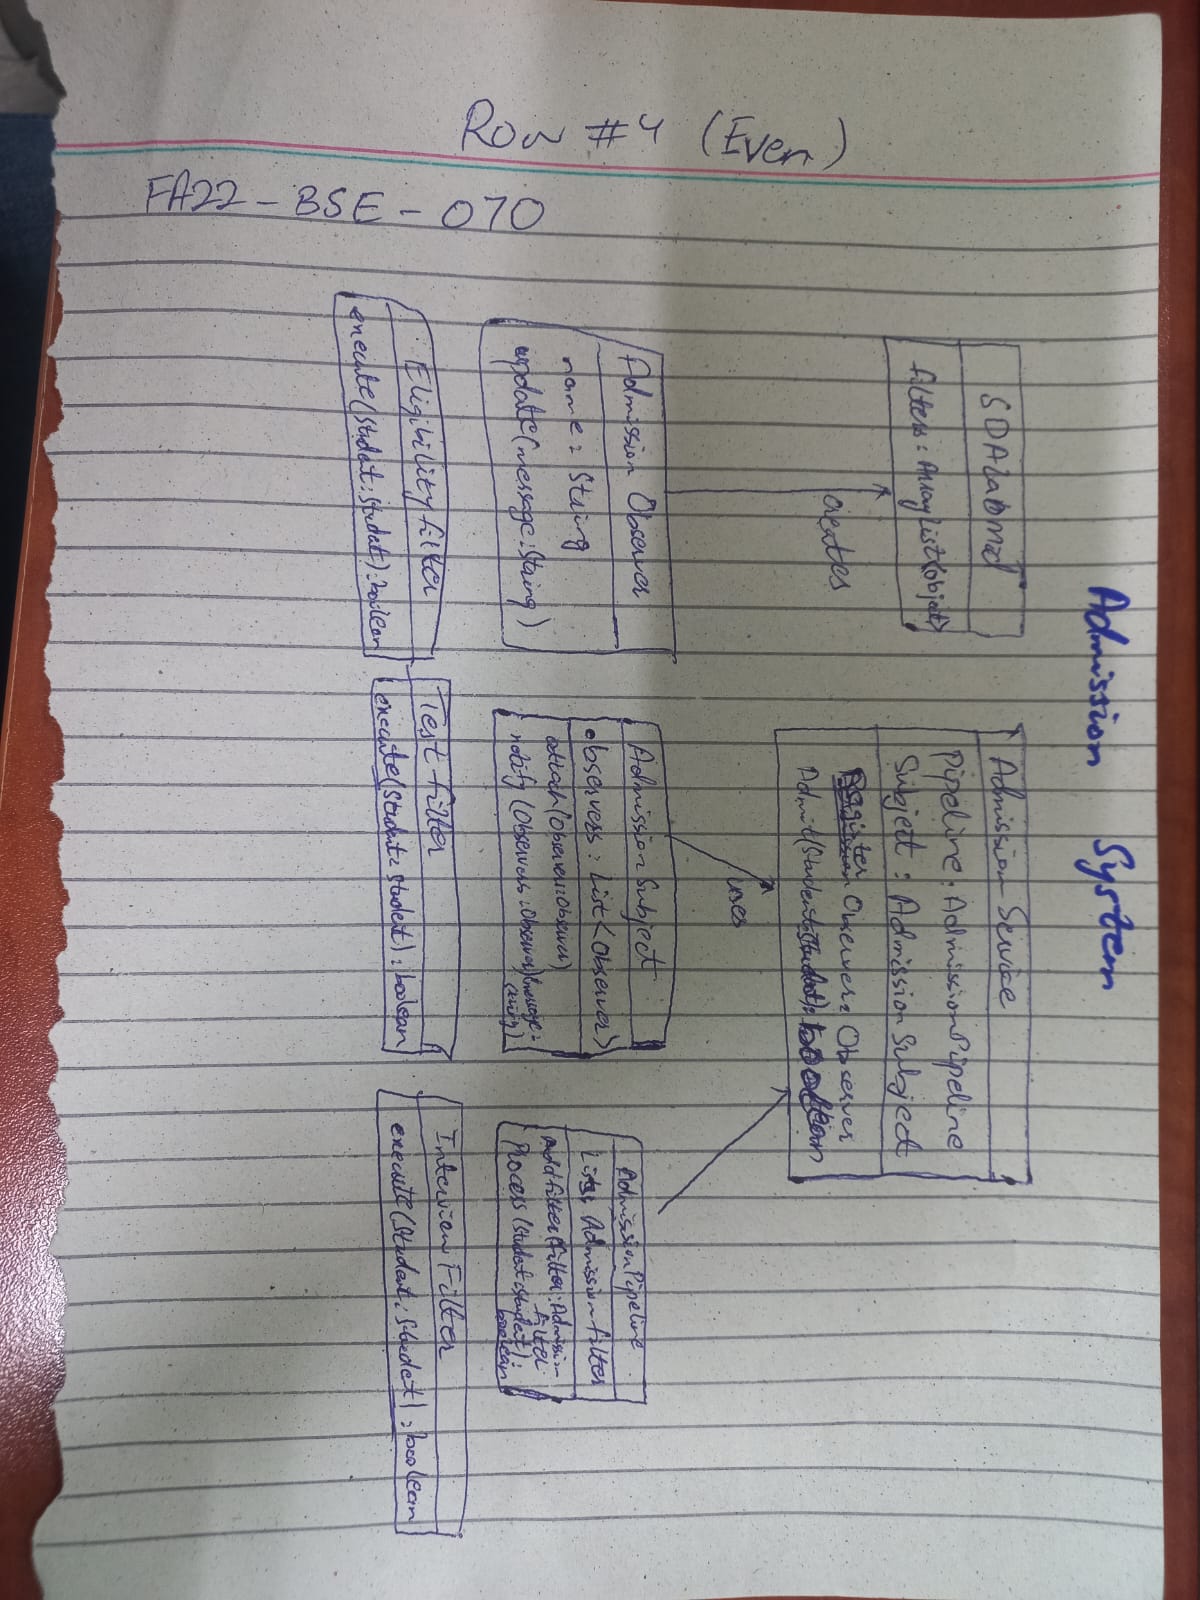 Row #4 (Even)
FA22-BSE-070
Admission System
SDALabmid
filters: ArrayList<object>
creates
Admission Service
Pipeline: AdmissionPipeline
Subject: AdmissionSubject
Register Observer: Observer
Admit(Student:Student): boolean
uses
Admission Observer
name: String
update(message:String)
AdmissionSubject
observers: List<Observer>
attach(Observer:observer)
notify(Observer:observer)(message:
AdmissionPipeline
List: Admissionfilter
Addfilter(filter:Admission
filter
Process(student:student):
boolean
Eligibilityfilter
execute(student:student):boolean
Test filter
execute(student:student):boolean
Interview Filter
execute(student:student):boolean